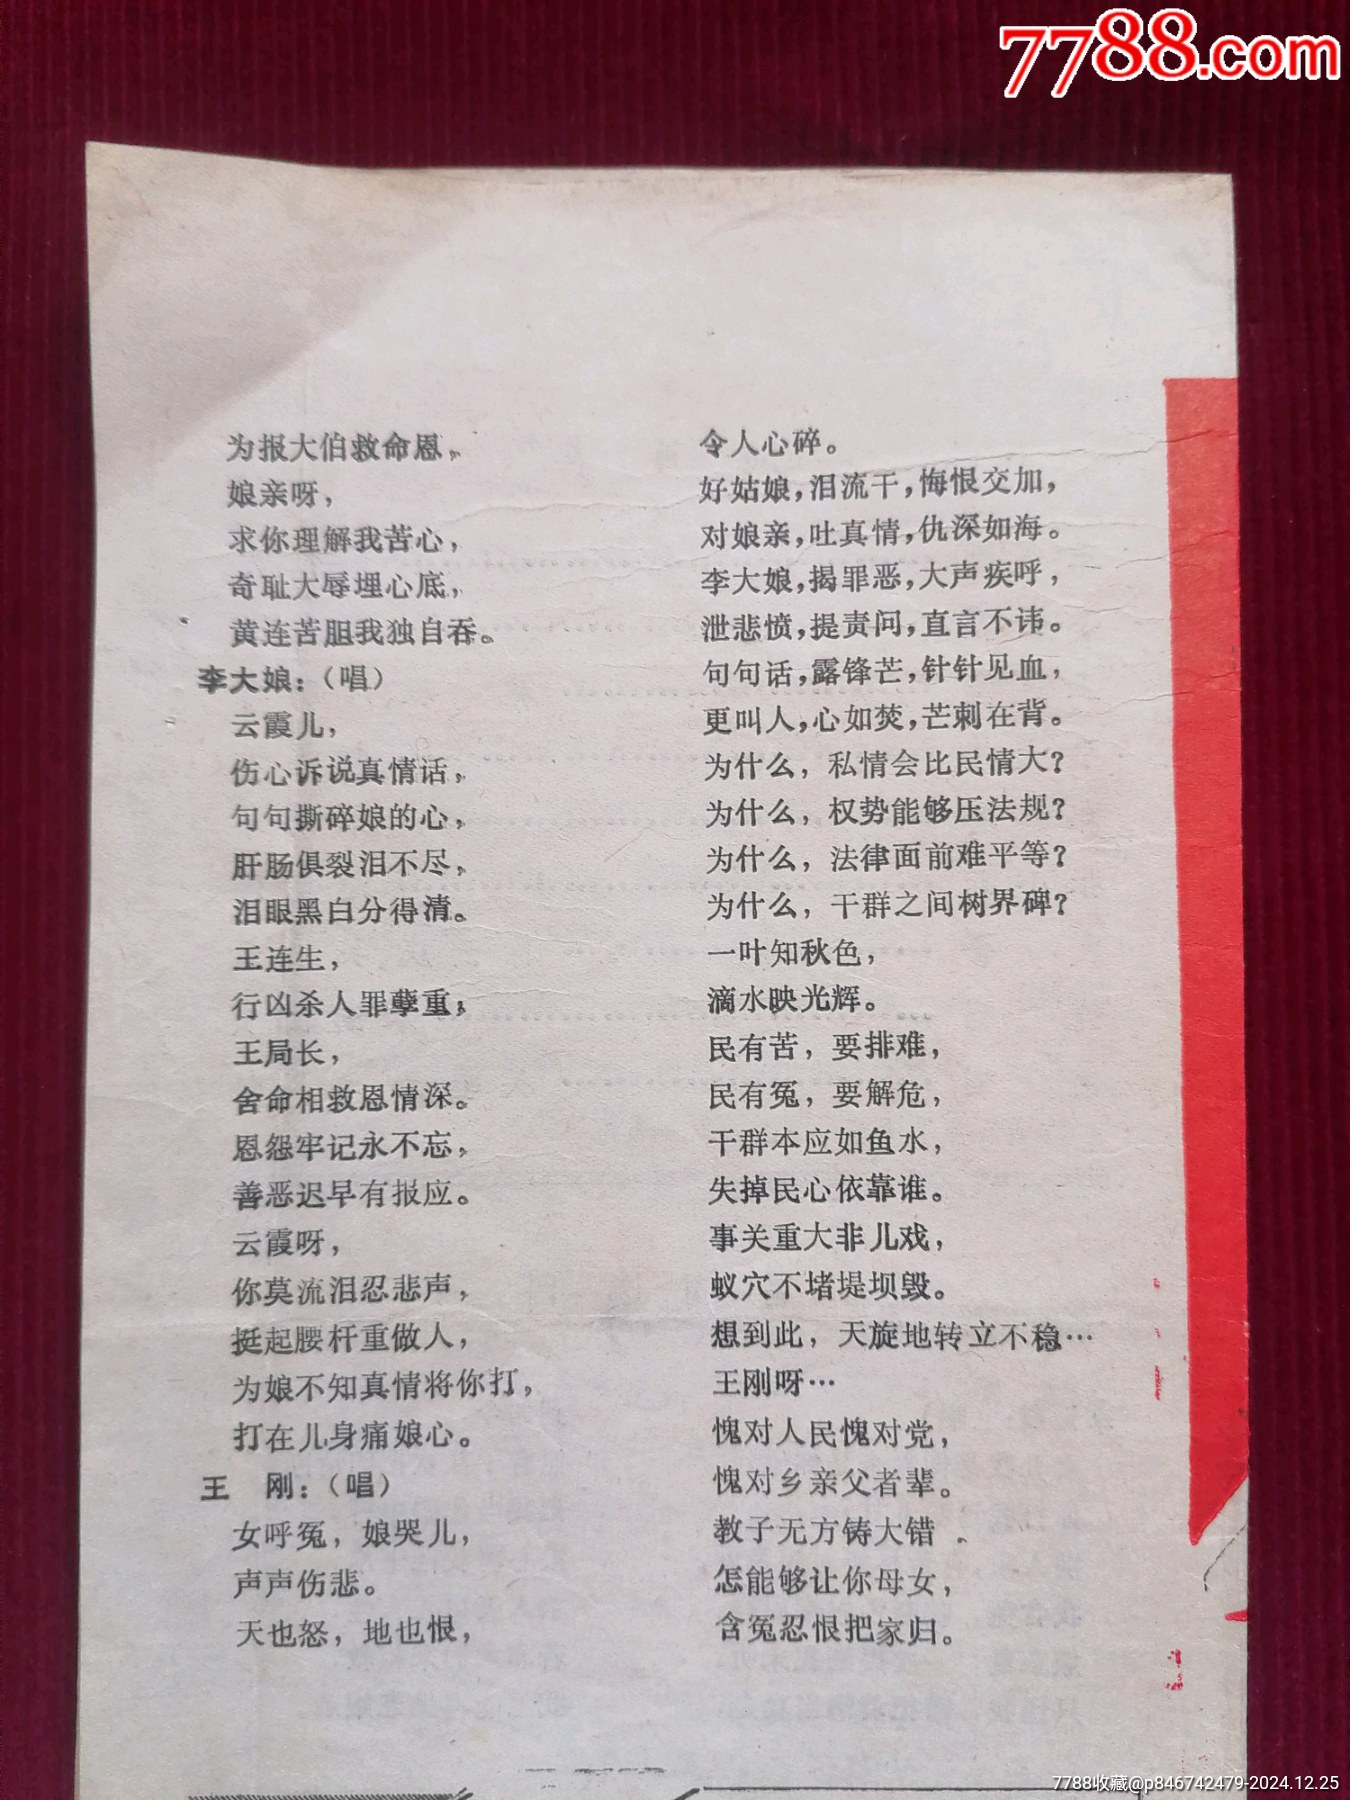 7788.com
为报大伯救命恩，
娘亲呀，
求你理解我苦心，
奇耻大辱埋心底，
黄连苦胆我独自吞。
李大娘：（唱）
云霞儿，
伤心诉说真情话，
句句撕碎娘的心，
肝肠俱裂泪不尽，
泪眼黑白分得清。
王连生，
行凶杀人罪孽重；
王局长，
舍命相救恩情深。
恩怨牢记永不忘，
善恶迟早有报应。
云霞呀，
你莫流泪忍悲声，
挺起腰杆重做人，
为娘不知真情将你打，
打在儿身痛娘心。
王　刚：（唱）
女呼冤，娘哭儿，
声声伤悲。
天也怒，地也恨，
令人心碎。
好姑娘，泪流干，悔恨交加，
对娘亲，吐真情，仇深如海。
李大娘，揭罪恶，大声疾呼，
泄悲愤，提责问，直言不讳。
句句话，露锋芒，针针见血，
更叫人，心如焚，芒刺在背。
为什么，私情会比民情大？
为什么，权势能够压法规？
为什么，法律面前难平等？
为什么，干群之间树界碑？
一叶知秋色，
滴水映光辉。
民有苦，要排难，
民有冤，要解危，
干群本应如鱼水，
失掉民心依靠谁。
事关重大非儿戏，
蚁穴不堵堤坝毁。
想到此，天旋地转立不稳…
王刚呀…
愧对人民愧对党，
愧对乡亲父者辈。
教子无方铸大错．
怎能够让你母女，
含冤忍恨把家归。
7788收藏@p846742479-2024.12.25